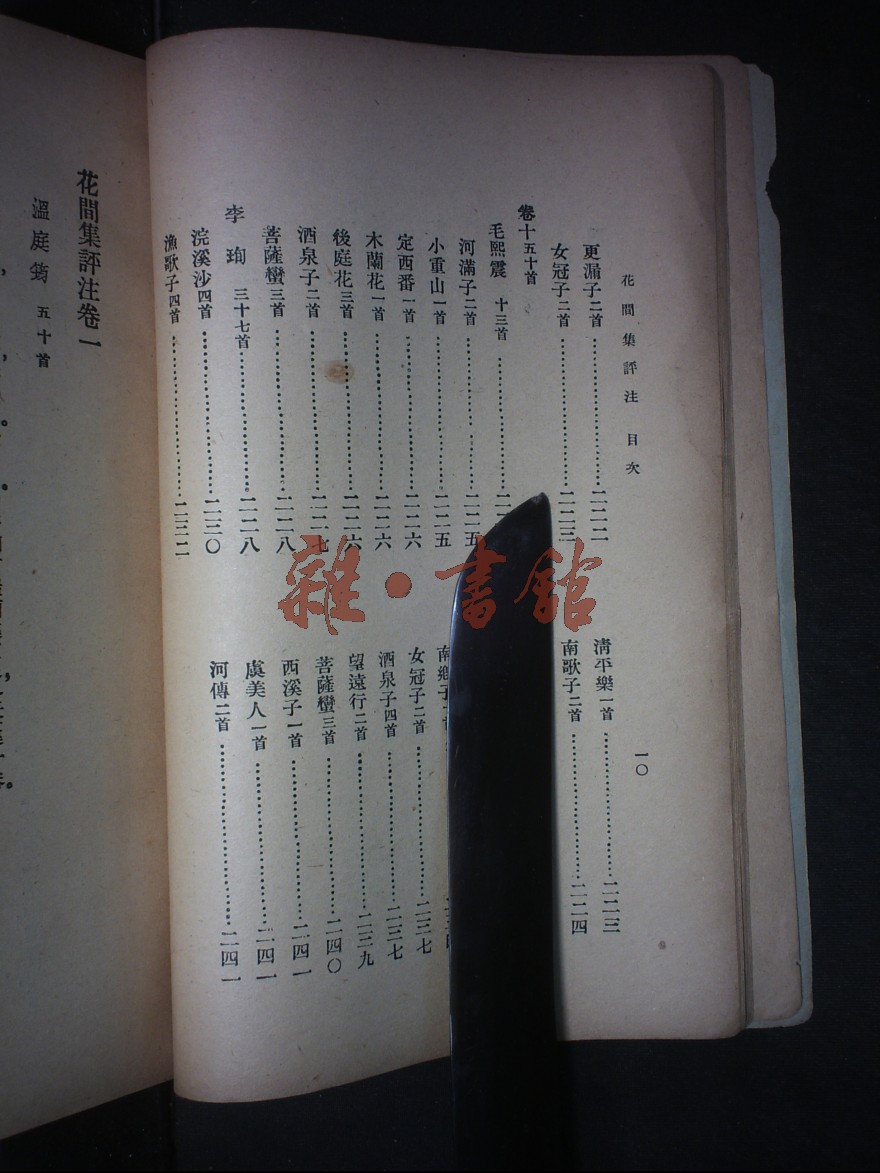 花間集評注 目次
一〇
更漏子二首……二二二
女冠子二首……二二三
卷十五十首
毛熙震 十三首……二
河滿子二首……二二五
小重山一首……二二五
定西番一首……二二六
木蘭花一首……二二六
後庭花三首……二二六
酒泉子二首……二二七
菩薩蠻三首……二二八
李珣 三十七首……二二八
浣溪沙四首……二三〇
漁歌子四首……二三二
清平樂一首……二二三
南歌子二首……二二四
南鄉子
女冠子二首……二三七
酒泉子四首……二三七
望遠行二首……二三九
菩薩蠻三首……二四〇
西溪子一首……二四一
虞美人一首……二四一
河傳二首……二四一
花間集評注卷一
溫庭筠 五十首
雜·書館